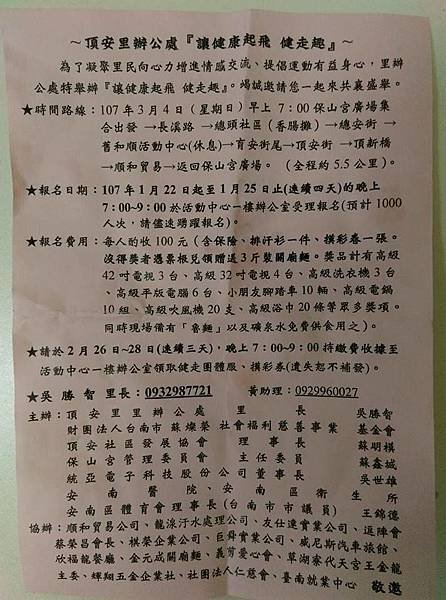 ～頂安里辦公處『讓健康起飛 健走趣』～
為了凝聚里民向心力增進情感交流、提倡運動有益身心，里辦
公處特舉辦『讓健康起飛 健走趣』。竭誠邀請您一起來共襄盛舉。
★時間路線：107年3月4日（星期日）早上7:00保山宮廣場集
合出發→長溪路→總頭社區（香腸攤）→總安街→
舊和順活動中心(休息)→育安街尾→頂安街→頂新橋
→順和貿易→返回保山宮廣場。（全程約5.5公里）。
★報名日期：107年1月22日起至1月25日止(連續四天)的晚上
7:00~9:00於活動中心一樓辦公室受理報名(預計1000
人次，請儘速踴躍報名)。
★報名費用：每人酌收100元（含保險、排汗衫一件、摸彩卷一張。
沒得獎者憑票根兌領贈送3斤裝關廟麵。獎品計有高級
42吋電視3台、高級32吋電視4台、高級洗衣機3台
、高級平版電腦6台、小朋友腳踏車10輛、高級電鍋
10組、高級吹風機20支、高級浴巾20條等眾多獎項。
同時現場備有「魯麵」以及礦泉水免費供食用之）。
★請於2月26日~28日(連續三天)，晚上7:00~9:00持繳費收據至
活動中心一樓辦公室領取健走團體服、摸彩券(遺失恕不補發)。
★吳勝智里長：0932987721 黃助理：0929960027
主辦：頂安里里辦公處 里長 吳勝智
財團法人台南市蘇燦榮社會福利慈善事業基金會
頂安社區發展協會 理事長 蘇明模
保山宮管理委員會 主任委員 蘇鑫城
統亞電子科技股份公司董事長 吳世雄
安南醫院、安南區衛生所
安南區體育會理事長(台南市市議員) 王錦德
協辦：順和貿易公司、龍湶汙水處理公司、友仕達實業公司、逗陣會
蔡榮昌會長、棋榮企業公司、巨舜實業公司、威尼斯汽車旅館、
欣福龍餐廳、金元成關廟麵、義勇愛心會、草湖寮代天宮王金龍
主委、輝翔五金企業社、社團法人仁慈會、臺南就業中心 敬邀